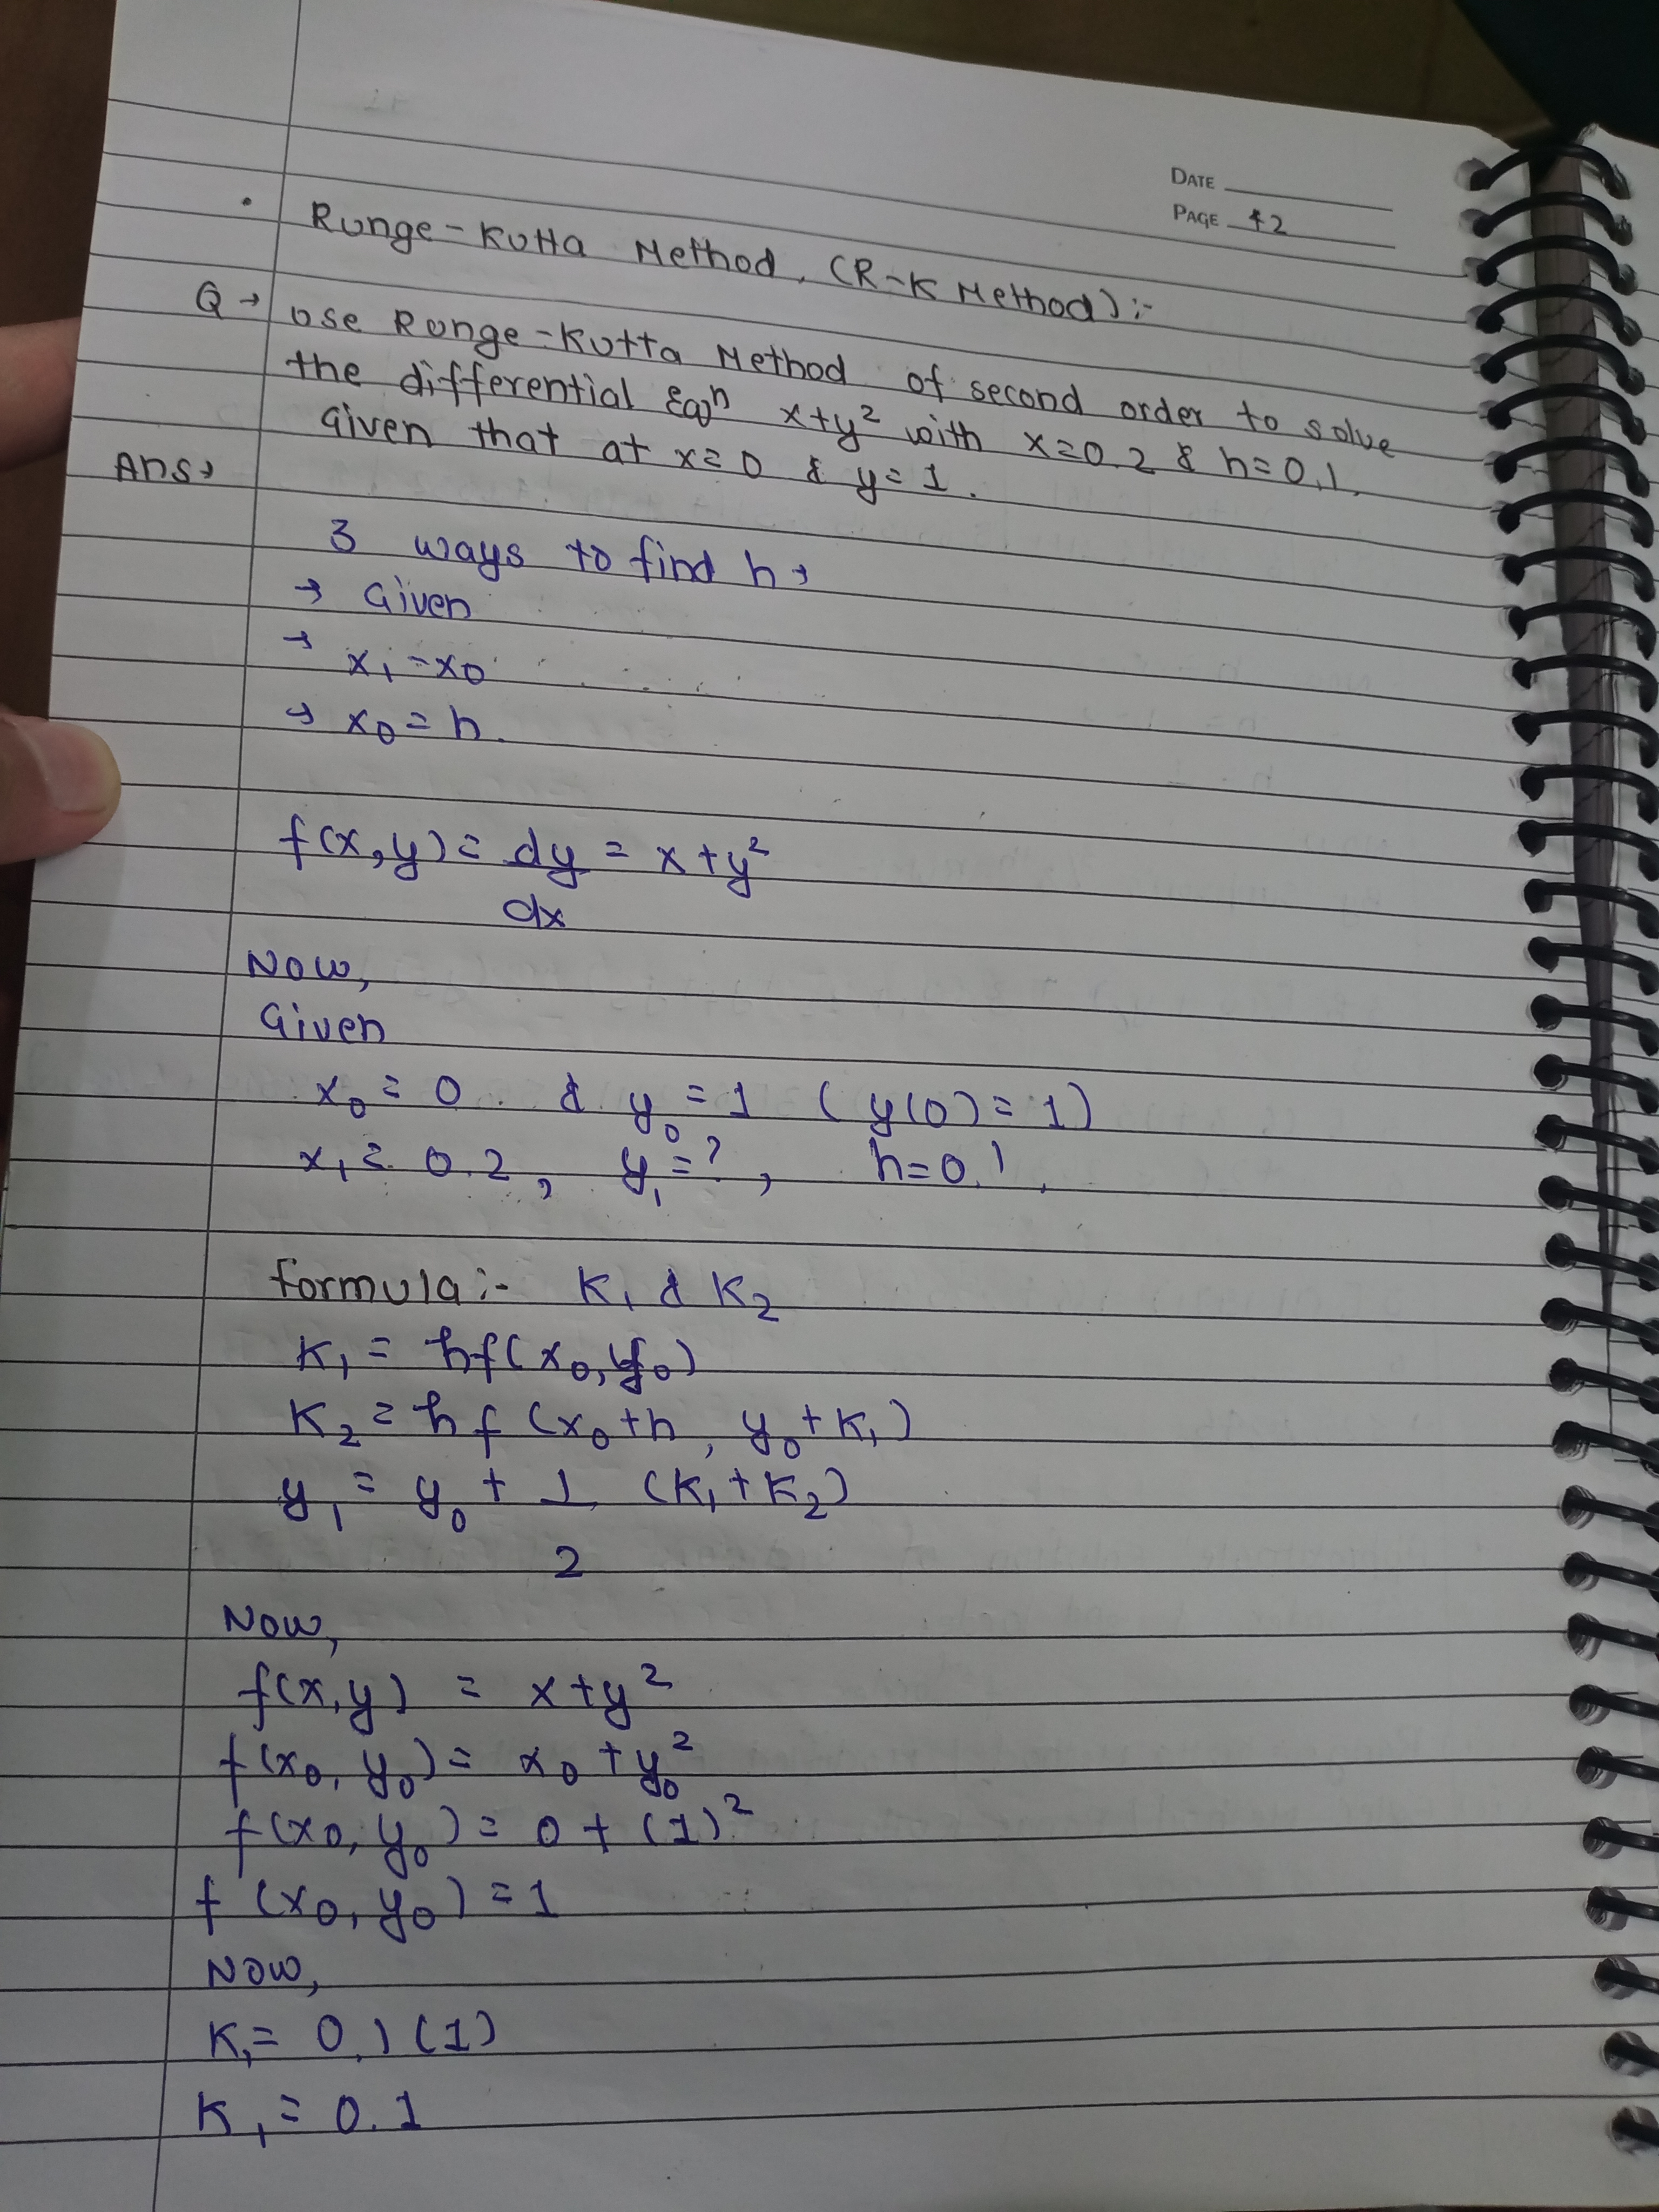 DATE
PAGE 42
Runge-Kutta Method. (R-K Method):-
Q→ Use Runge-Kutta Method of second order to solve
the differential Eqⁿ x+y² with x=0.2 & h=0.1.
Given that at x=0 & y=1.
Ans→
3 ways to find h→
→ Given
→ x₁-x₀
→ x₀=h.
f(x,y)= dy = x+y²
dx
Now,
Given
x₀=0 & y₀=1 (y(0)=1)
x₁=0.2, y₁=?, h=0.1.
formula:- K₁ & K₂
K₁ = hf(x₀,y₀)
K₂ = hf(x₀+h, y₀+K₁)
y₁ = y₀ + 1 (K₁+K₂)
2
Now,
f(x,y) = x+y²
f(x₀,y₀) = x₀+y₀²
f(x₀,y₀) = 0+(1)²
f(x₀,y₀)=1
Now,
K₁= 0.1(1)
K₁ = 0.1